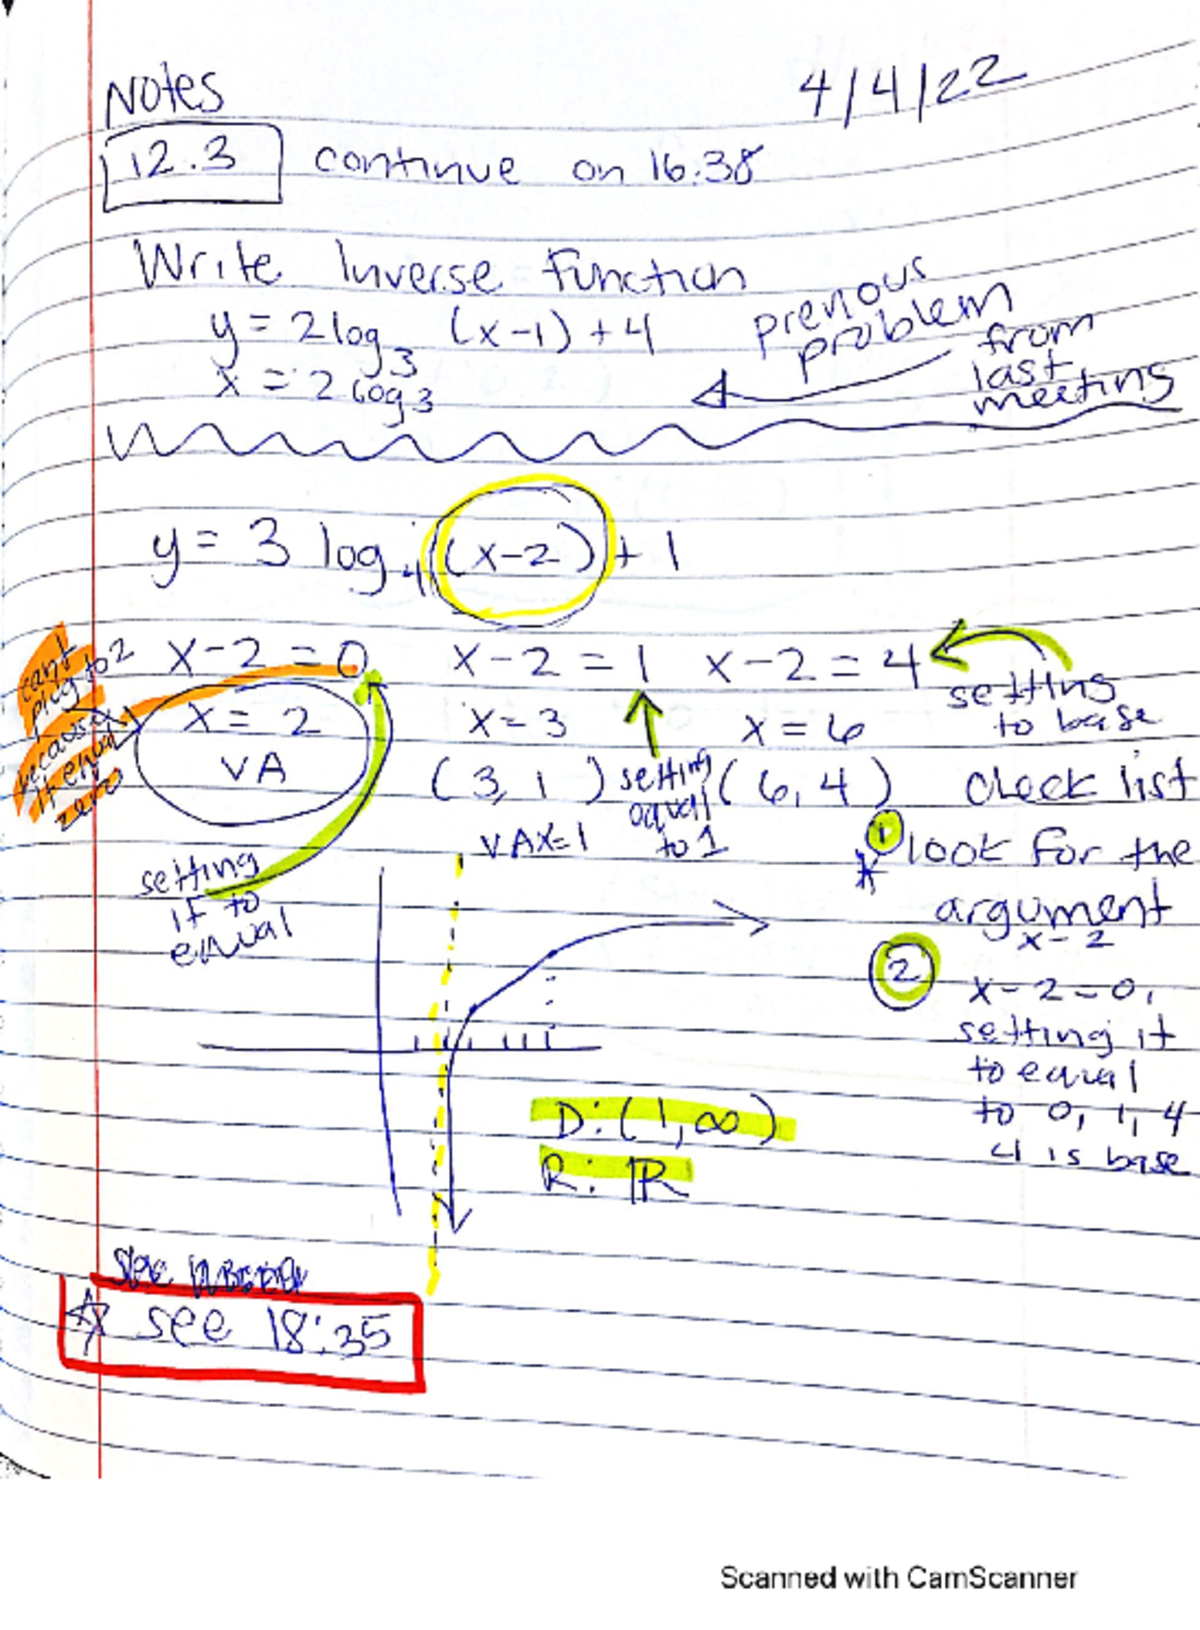 Notes 4/4/22
12.3 continue on 16:38
Write Inverse Function
y = 2 log3 (x-1) + 4
x = 2 log3
previous
problem
from
last
meeting
y = 3 log4 (x-2) + 1
can't
plug in 2
because
it equal
zero
x-2 = 0 x-2 = 1 x-2 = 4
x = 2 x = 3 x = 6
VA
setting
to base
(3, 1) (6, 4)
setting
equal
to 1
VA x=1
setting
it to
equal
check list
1 look for the
argument
x-2
2 x-2=0,
setting it
to equal
to 0, 1, 4
4 is base
D: (1, ∞)
R: ℝ
see
see 18:35
Scanned with CamScanner